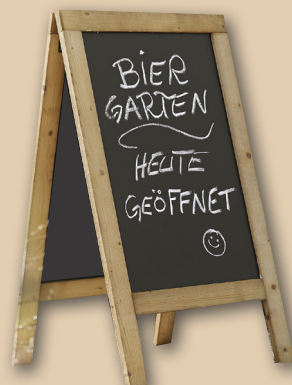 BiER
GARTEN
HEUTE
GEÖFFNET